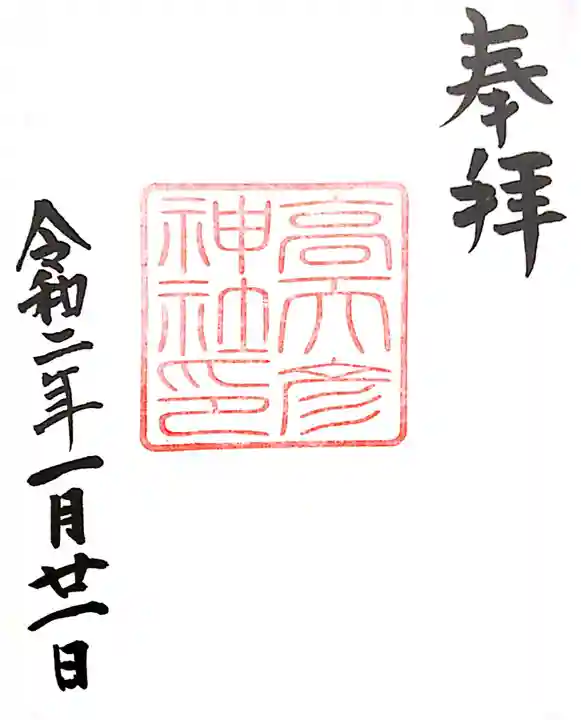 奉拝
高天彦
神社印
令和二年一月廿一日